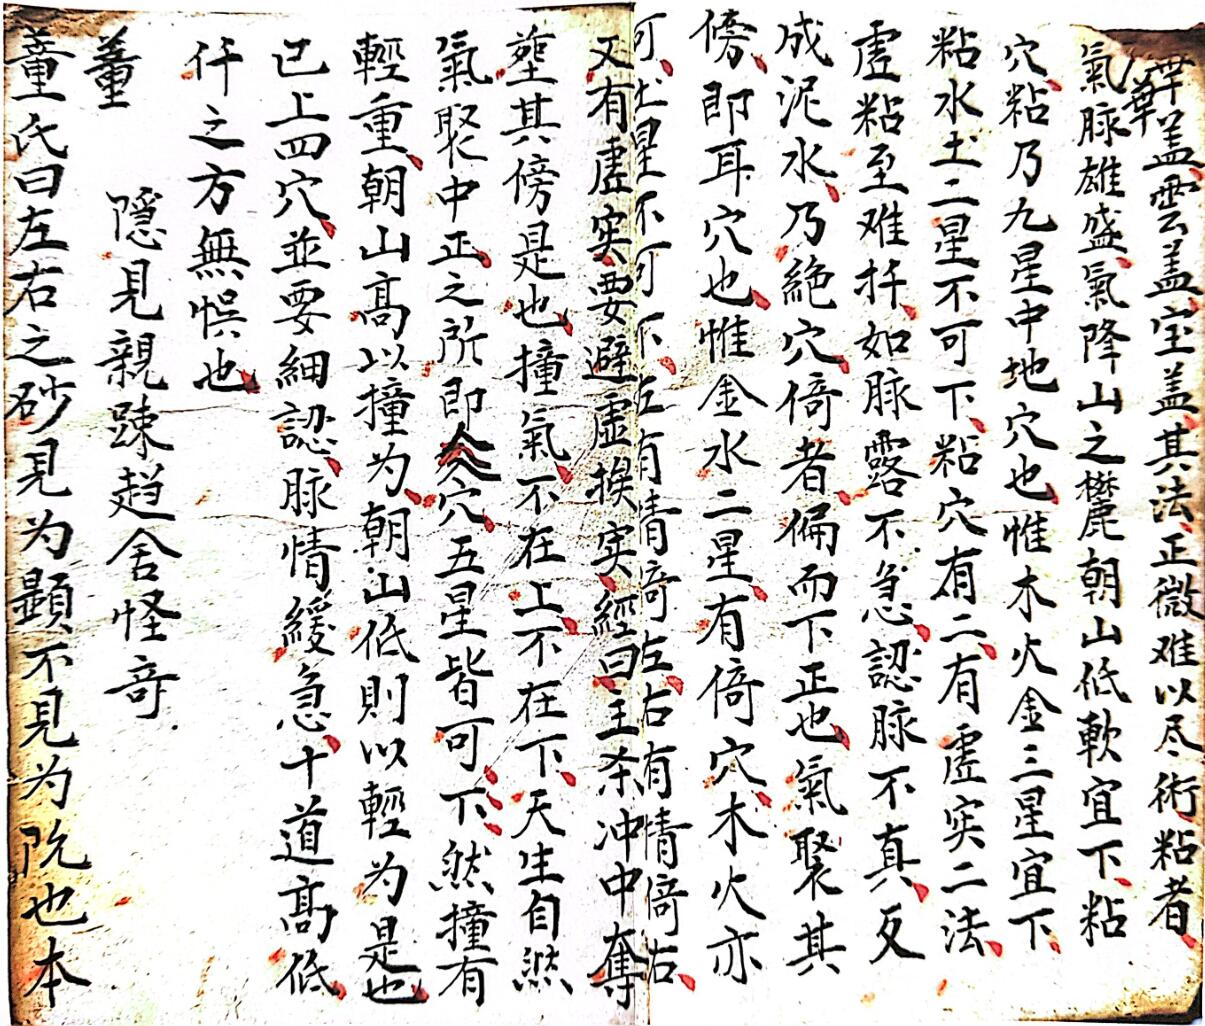 華盖雲盖宝盖其法正微难以尽術粘者
氣脉雄盛氣降山之麓朝山低軟宜下粘
穴粘乃九星中地穴也惟木火金三星宜下
粘水土二星不可下粘穴有二有虚实二法
虚粘至难扦如脉露不急認脉不真反
成泥水乃絶穴倚者偏而下正也氣聚其
傍即耳穴也惟金水二星有倚穴木火亦
可土星不可下左有情倚左右有情倚右
又有虚实要避虚挨实經曰主杀冲中奪
堂其傍是也撞氣不在上不在下天生自然
氣聚中正之所即人穴五星皆可下然撞有
輕重朝山高以撞为朝山低則以輕为是也
已上四穴並要細認脉情緩急十道高低
仟之方無悮也
董　隱見親踈趋舍怪奇
董氏曰左右之砂見为顯不見为阮也本